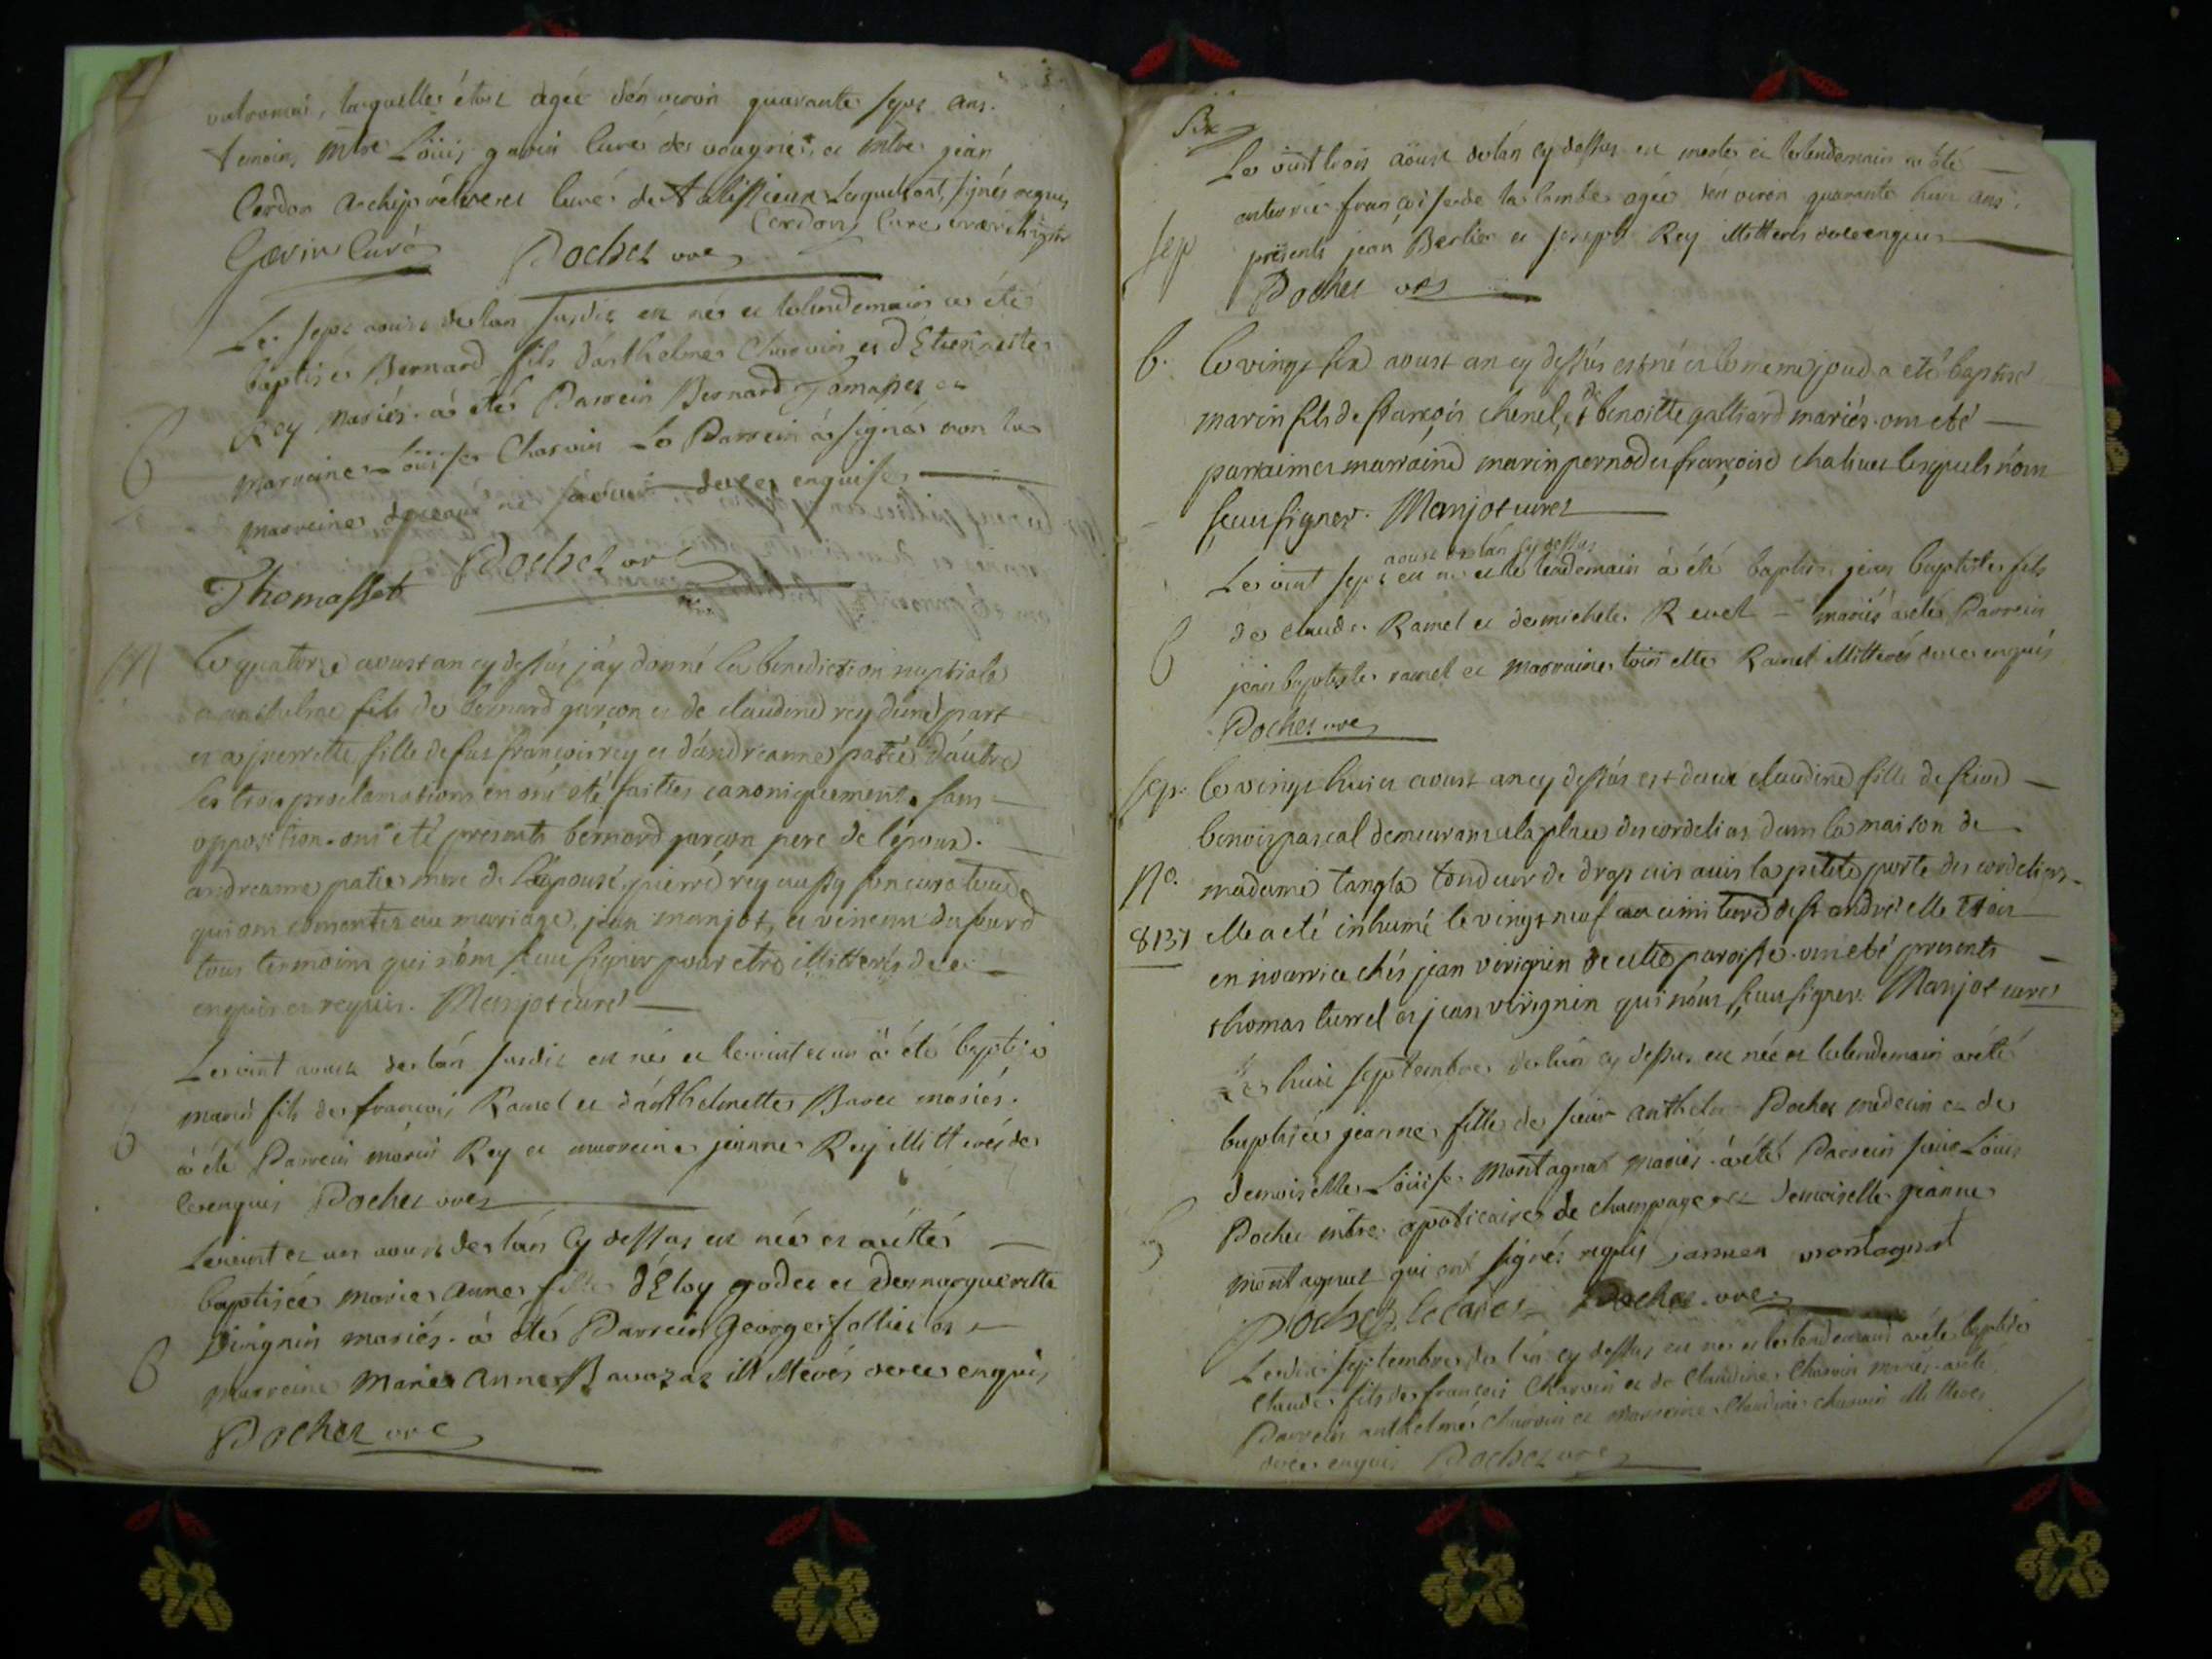 laquelle étoit agée d'énviron quarante sept ans.
temoins mtre Loüis gavin curé de vougnie, et mtre jean
Cerdon archiprétre et curé de Talissieux lesquels ont signés requis
Cerdon curé archiprêtre
Gavin curé Pochet vre
Le sept aoust de lán susdit est né et le lendemain a été
baptisé Bernard fils d'ánthelme Charvin et d'Etiennette
Rey mariés. a été Parrein Bernard Tomasset et
marreine Loüise Charvin Le Parrein a signé non la
marreine pour ne sçavoir de ce enquise
Thomasset Pochet vre
M le quatorze aoust an cy dessus j'ay donné la benediction nuptiale
a anthelme fils de bernard garçon et de claudine rey d'une part
et a pierrette fille de fut françois rey et d'andreanne patée d'autre
les trois proclamations en ont été faittes canoniquement sans
opposition. ont eté presents bernard garçon pere de l'epoux.
andreanne patée mere de l'epouse, pierre rey aussy son curateur
qui ont consentis au mariage, jean manjot, et vincent dufour
tous temoins qui n'ont sceu signer pour etre illitterés de ce
enquis et requis. Manjot curé
Le vint aoust de lán susdit est né et le vint et un a été baptisé
B marin fils de françois Ramel et d'ánthelmette Bavet mariés.
a été Parrein marin Rey et marreine jeanne Rey illitterés de
ce enquis Pochet vre
Le vint et un aoust de lán cy dessus est née et a été
baptisée marie anne fille d'Eloy godet et de marguerite
virignin mariés. a été Parrein George folliet et
B marreine Marie Anne Bavozat illitterés de ce enquis
Pochet vre
Six
Le vint trois aoust de lán cy dessus est morte et le lendemain a été
enterrée françoise de la combe agée d'énviron quarante huit ans.
Sep présents jean Berlie et joseph Rey illitterés de ce enquis
Pochet vre
b. le vingt six aoust an cy dessus est né et le meme jour a eté baptisé
marin fils de françois chenel, et de benoitte galliard mariés. ont eté
parrain et marraine marin pernod et françoise chalivet lesquels n'ont
sceu signer. Manjot curé
aoust de lán cy dessus
Le vint sept est né et le lendemain a été baptisé jean baptiste fils
B de claude Ramel et de michele Revel mariés a été Parrein
jean baptiste ramel et marraine toinette Ramel illitterés de ce enquis
Pochet vre
Sep. le vingt huit aoust an cy dessus est decedé claudine fille de sieur
benoit pascal demeurant a la place des cordeliers dans la maison de
No. madame tangla tondeur de draps vis a vis la petite porte des cordeliers.
8137 elle a eté inhumé le vingt neuf au cimitiere de st andré elle etoit
en nourrice chés jean virignin de cette paroisse. ont eté presents
thomas turrel et jean virignin qui n'ont sceu signer. Manjot curé
Le huit septembre de lán cy dessus est née et le lendemain a été
baptisée jeanne fille de sieur anthelme Pochet médecin et de
demoiselle Loüise Montagnat mariés. a été Parrein sieur Loüis
B Pochet mtre apoticaire de champagne et demoiselle jeanne
montagnat qui ont signés requis jeanne montagnat
Pochet Pochet vre
Le dix septembre de lán cy dessus est né et le lendemain a été baptisé
claude fils de françois Charvin et de Claudine Charvin mariés. a été
Parrein anthelme charvin et marreine Claudine charvin illitterés
de ce enquis Pochet vre